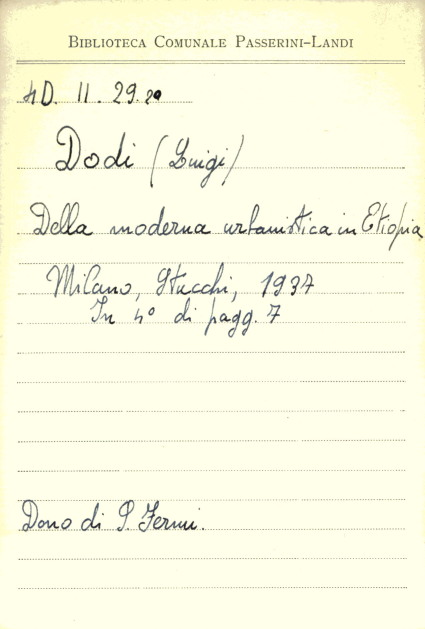 BIBLIOTECA COMUNALE PASSERINI-LANDI
4D. 11. 29.20
Dodi (Luigi)
Della moderna urbanistica in Etiopia
Milano, Stucchi, 1937
In 4° di pagg. 7
Dono di S. Fermi.